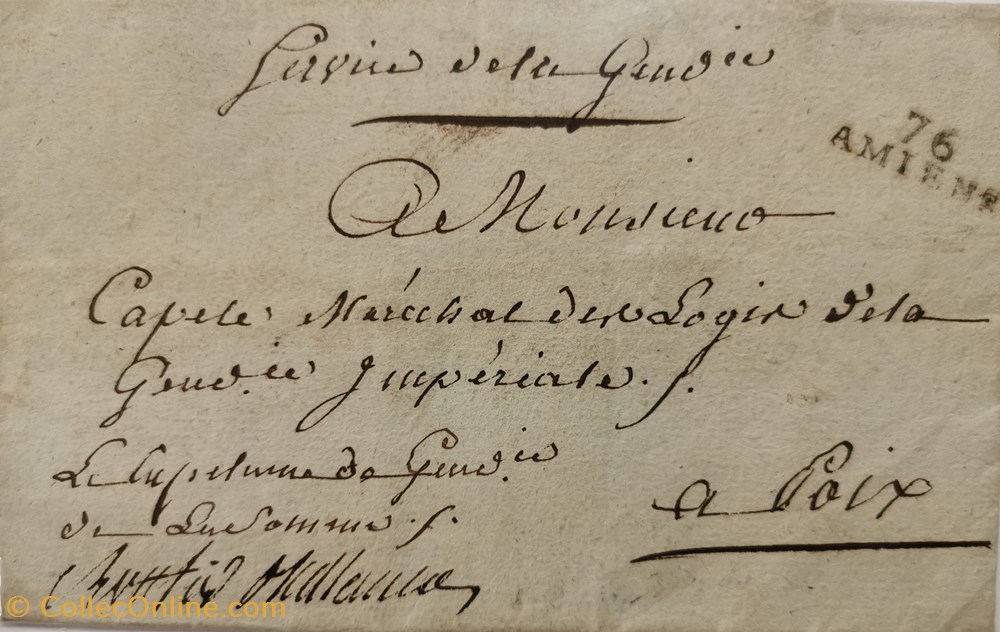 Service de la Gend.ie
76
AMIENS
A Monsieur
Capele Maréchal des Logis de la
Gend.ie Impériale.
Le Capitaine de Gend.ie
de la Somme.
a Poix
© CollecOnline.com